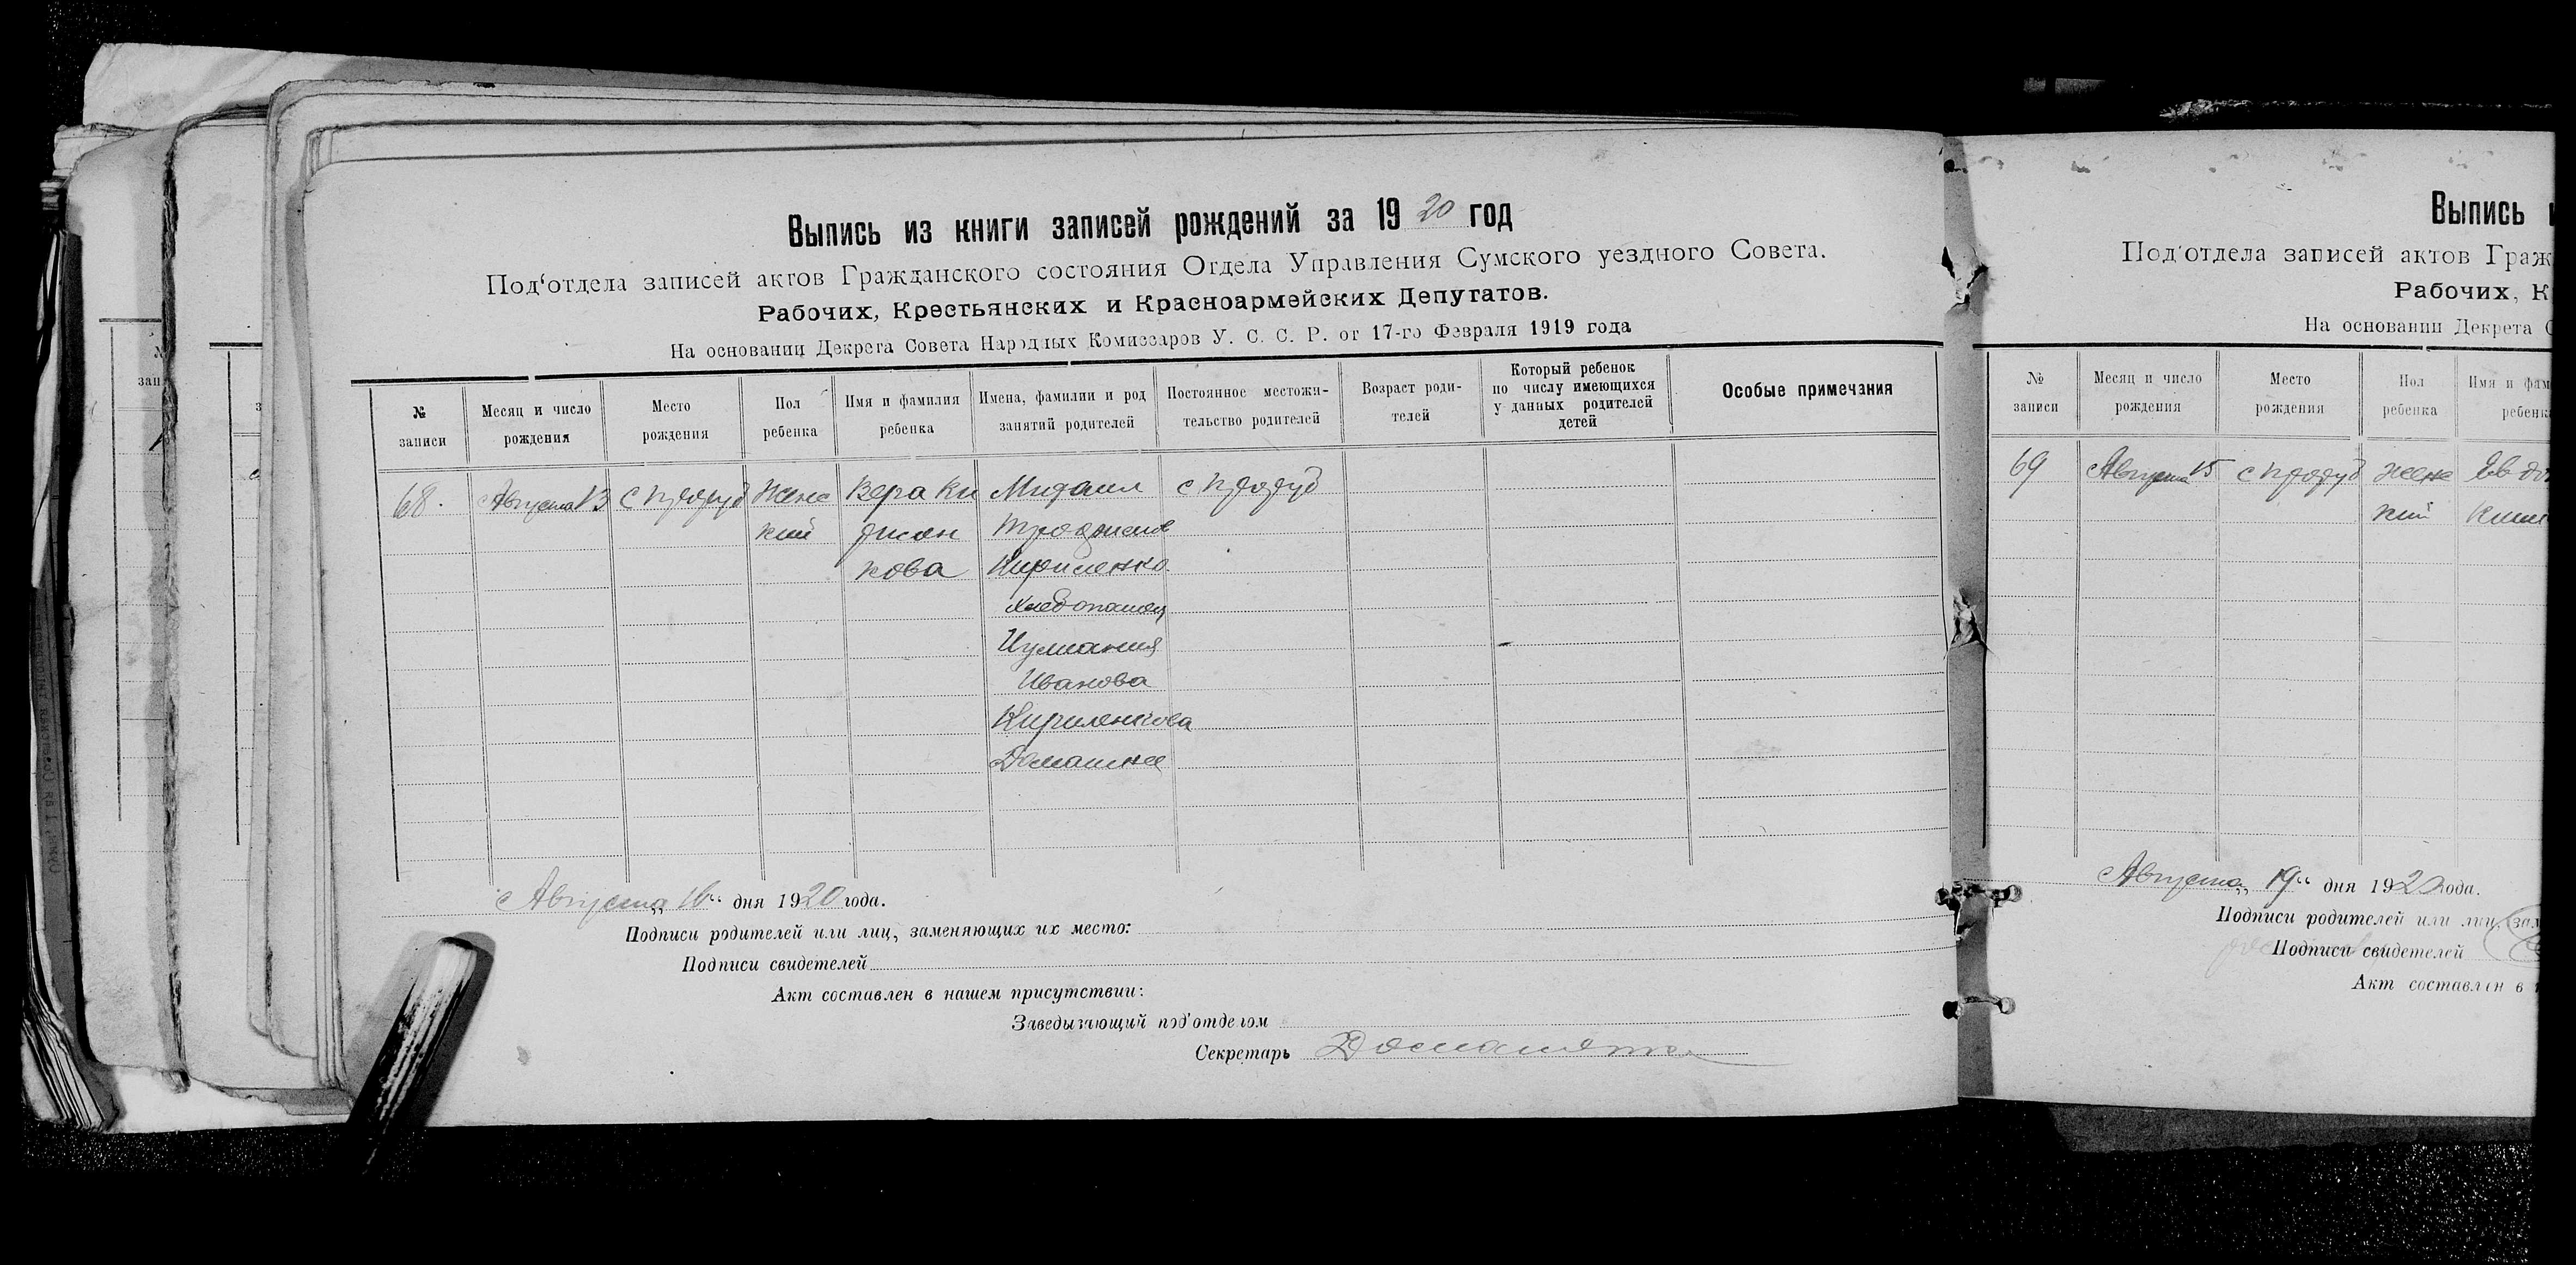 Выпись из книги записей рождений за 1920 год
Под‘отдела записей актов Гражданского состояния Отдела Управления Сумского уездного Совета.
Рабочих, Крестьянских и Красноармейских Депутатов.
На основании Декрета Совета Народных Комиссаров У. С. С. Р. от 17-го Февраля 1919 года
№ записи
Месяц и число рождения
Место рождения
Пол ребенка
Имя и фамилия ребенка
Имена, фамилии и род занятий родителей
Постоянное местожи-тельство родителей
Возраст роди-телей
Который ребенок по числу имеющихся у данных родителей детей
Особые примечания
68.
Августа 13
с
Женс
кий
Вера Ки
рилен
кова
Михаил
Кириленко
хлебопашец
Иулиания
Иванова
Кириленкова
Домашнее
с
Августа „16“ дня 1920 года.
Подписи родителей или лиц, заменяющих их место:
Подписи свидетелей
Акт составлен в нашем присутствии:
Заведывающий под‘отделом
Секретарь
Выпись и
Под‘отдела записей актов Граж
Рабочих, К
На основании Декрета С
№ записи
Месяц и число рождения
Место рождения
Пол ребенка
Имя и фам
ребенк
69
Августа 15
с
женс
кий
Евдо
Августа „19“ дня 1920 года.
Подписи родителей или лиц, зам
Подписи свидетелей
Акт составлен в н